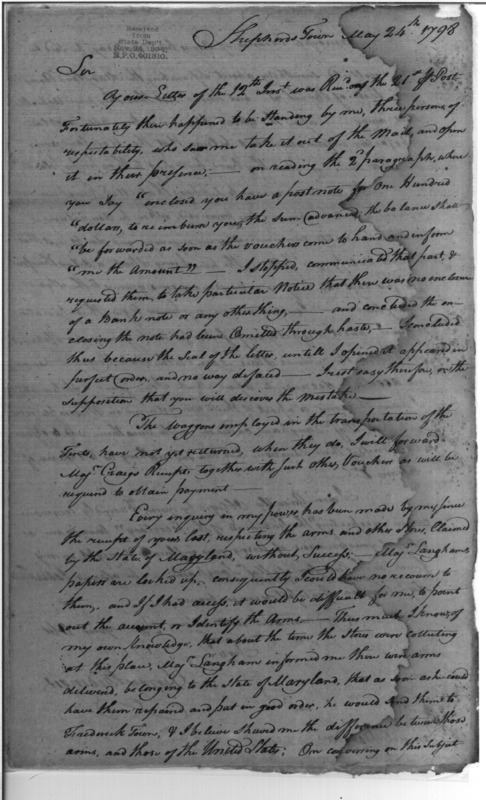 Received
from
State Dept.
Shepherds Town May 24th 1798
Sir
Your Letter of the 12th Inst. was Recd. on the 21st Post
Fortunately there happened to be standing by me, three persons of
respectability, who saw me take it out of the Mail, and open
it in their presence; — on reading the 2d paragraph, where
you Say "enclosed you have a post note for One Hundred
"dollars, to reimburse you, the sum advanced, the balance shall
"be forwarded as soon as the Vouchers come to hand, and inform
"me the Amount" — I stopped, communicated that part, &
requested them, to take particular Notice that there was no enclosure
of a Bank note or any other thing, — and concluded the en-
closing the note had been Omitted through haste, — I concluded
thus because the Seal of the letter, untill I opened it appeared in
perfect Order, and no way defaced — I rest easy therefore, on the
supposition that you will discover the mistake —
The Waggons employed in the transportation of the
Tents, have not yet returned, when they do, I will forward
Majr. Craigs Receipts together with such other, Vouchers as will be
required to obtain payment —
Every inquiry in my power, has been made by me since
the receipt of yours last, respecting the arms and other Stores, Claimed
by the State of Maryland, without, Success; — Majr. Langhams
papers are locked up, consequently I could have no recourse to
them, and If I had access, it would be difficult for me, to point
out the account, or Identify the Arms — Thus much I know, of
my own Knowledge, that about the time the Stores were collecting
at this place, Majr. Langham informed me there were arms
delivered, belonging to the State of Maryland, that as soon as he could
have them repaired and put in good order, he would send them to
Frederick Town, & I believe Shewed me the difference between those
arms, and those of the United States; On conversing on this Subject